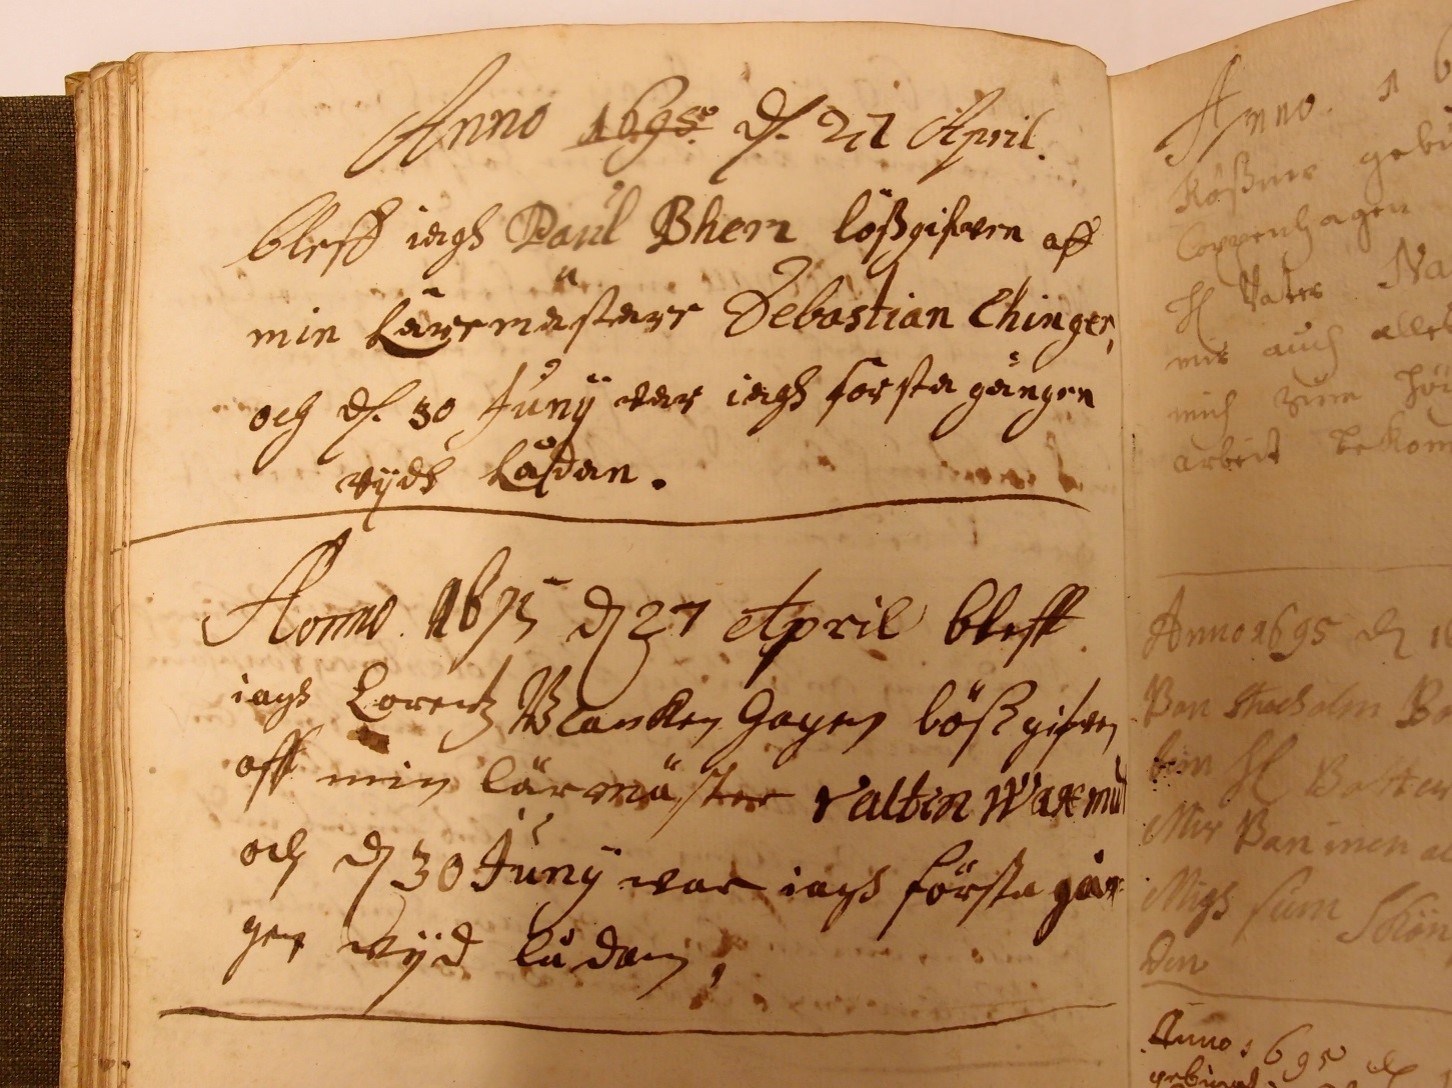 Anno 1695. d. 27 April.
bleff iagh Paul Bhem lößgifven aff
min Läremästare Sebastian Ehinger,
och d. 30 Junÿ var iagh första gången
vÿdh Lådan.
Anno. 1695 d 27 April bleff
iagh Lorentz Blancken Hagen lößgifven
aff min lärmäster Valtin Waxmut
och d 30 Junÿ var iagh första gån-
gen vÿd lådan,
Anno. 16
Rößner gebü
Coppenhagen
H Vater Na
mir auch alle
mich zum
arbeit bekom
Anno 1695 d 1
Van Stockolm
H
Mir Van inen
Migh sum
den
Anno 1695 d